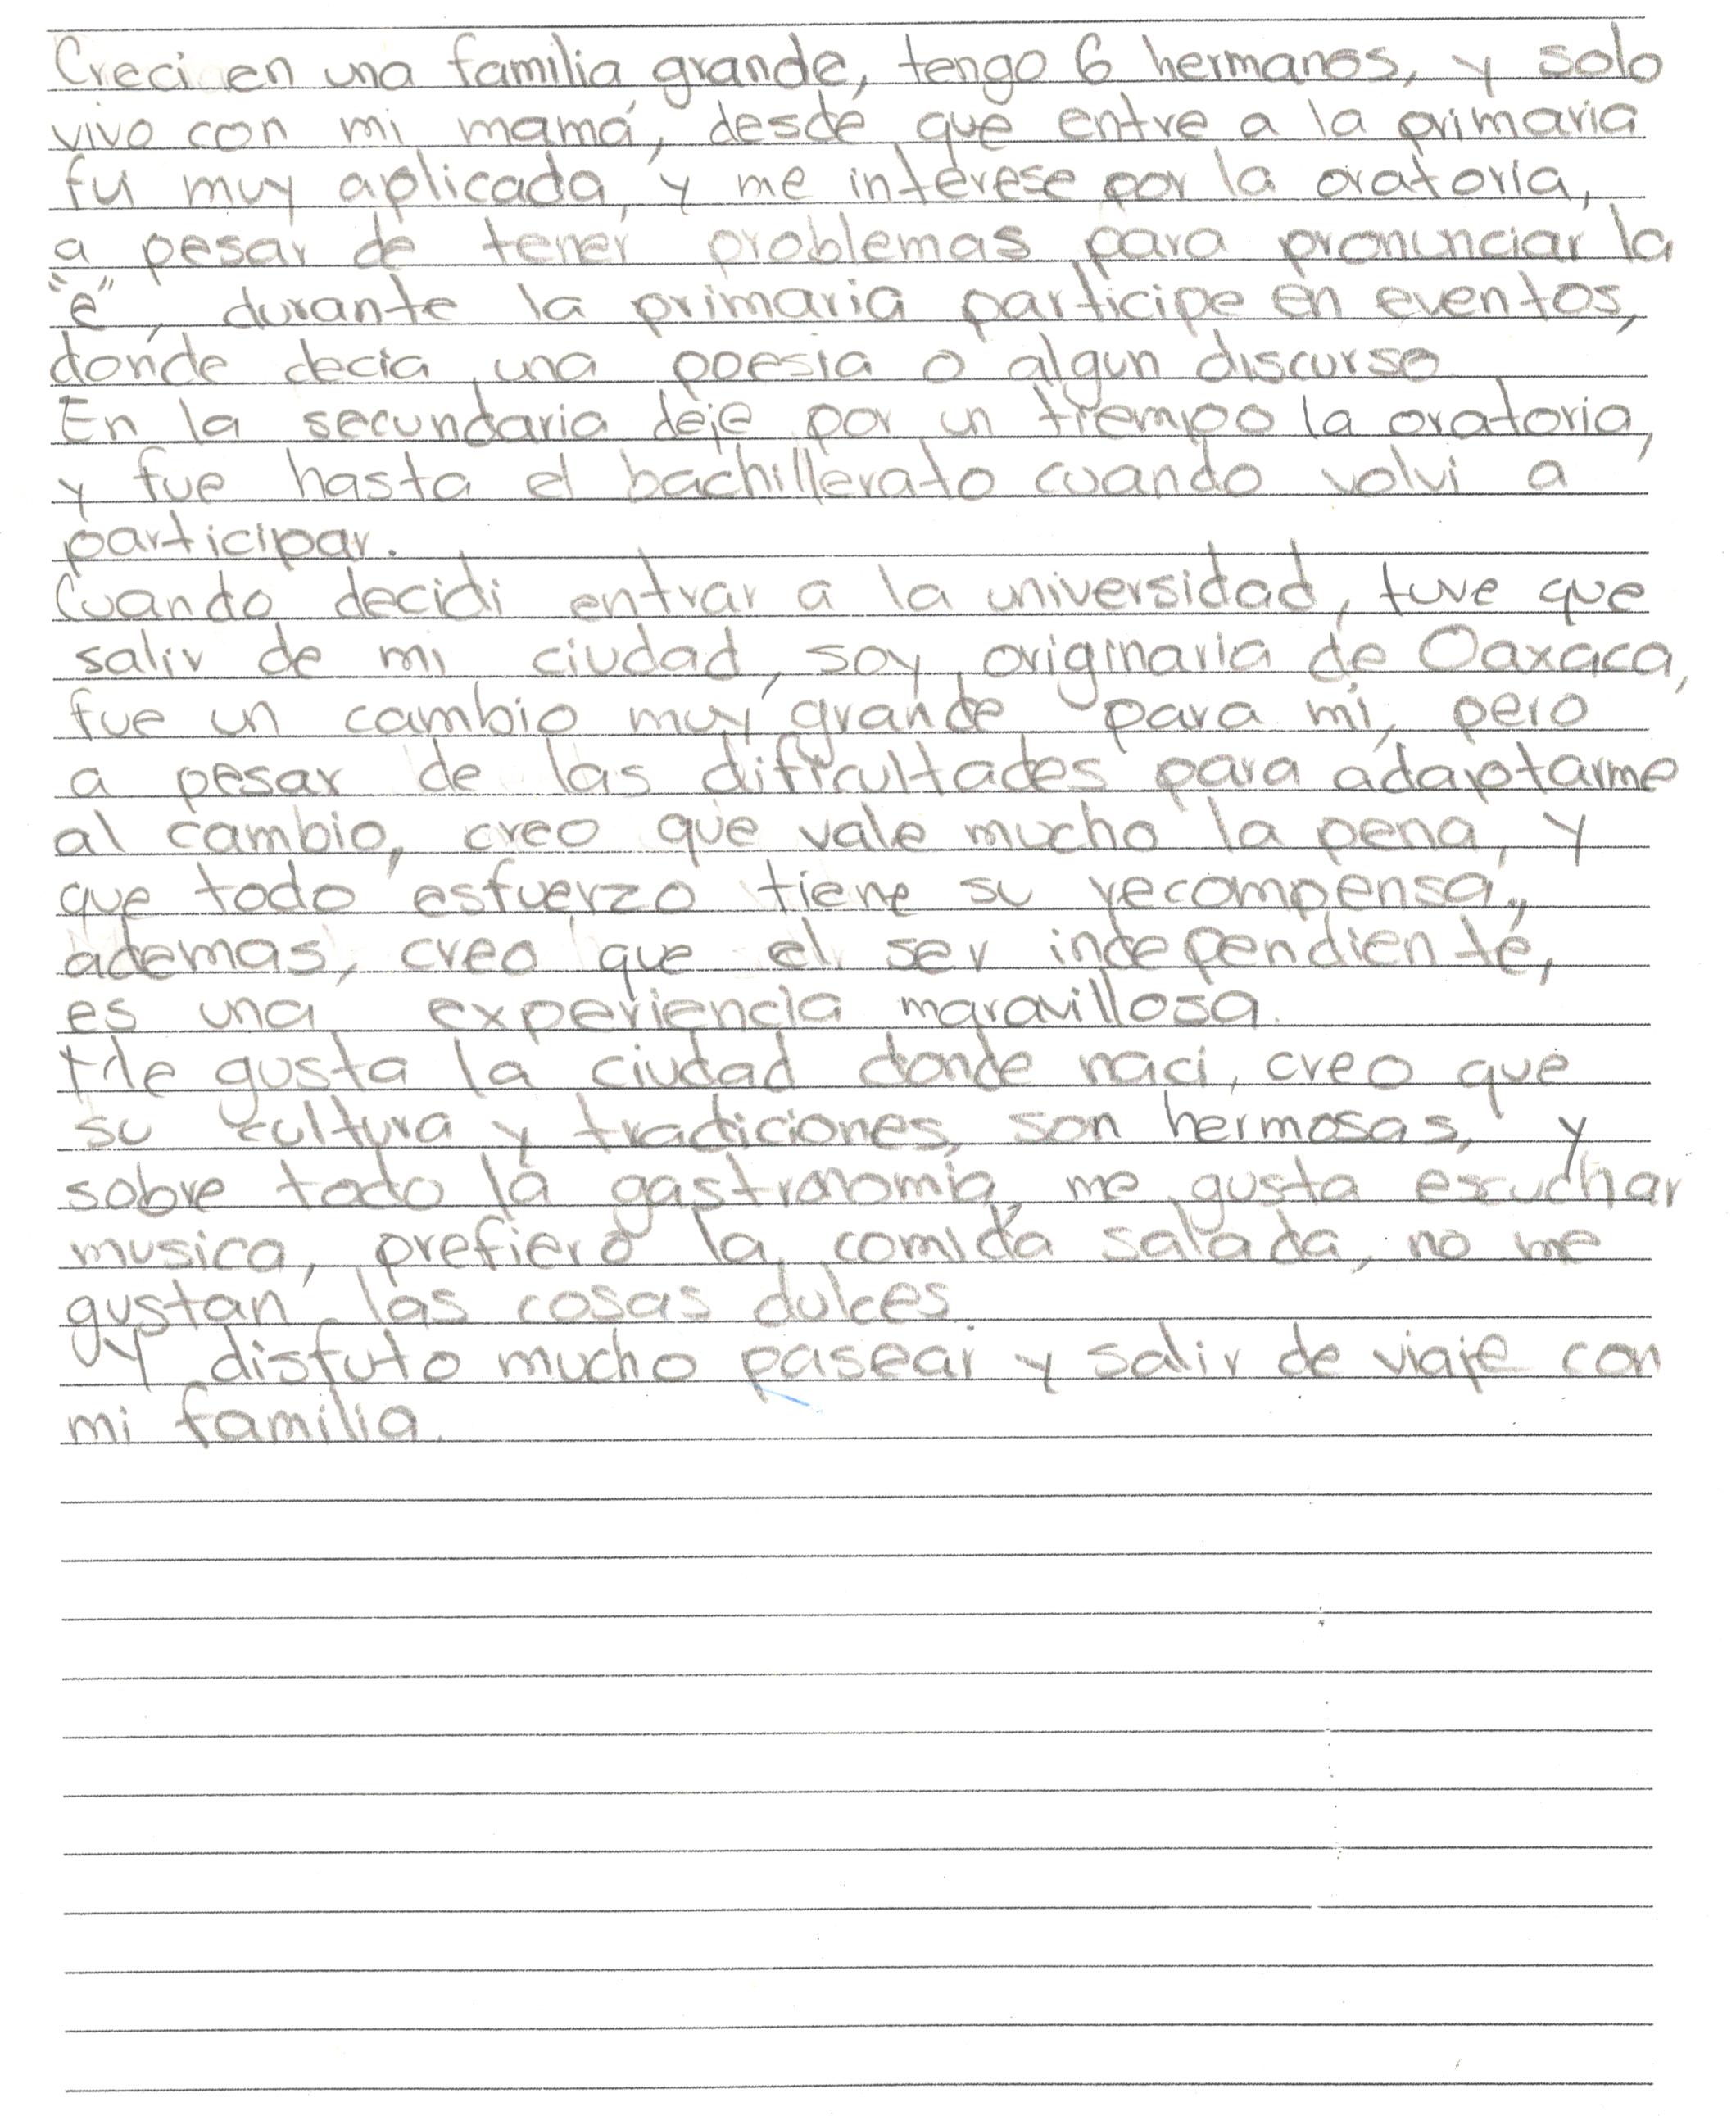 Creci en una familia grande, tengo 6 hermanos, y solo
vivo con mi mamá, desde que entre a la primaria
fui muy aplicada, y me interese por la oratoria,
a pesar de tener problemas para pronunciar la
"e", durante la primaria participe en eventos,
donde decia una poesia o algun discurso.
En la secundaria deje por un tiempo la oratoria,
y fue hasta el bachillerato cuando volvi a
participar.
Cuando decidi entrar a la universidad, tuve que
salir de mi ciudad, soy originaria de Oaxaca,
fue un cambio muy grande para mi, pero
a pesar de las dificultades para adaptarme
al cambio, creo que vale mucho la pena, y
que todo esfuerzo tiene su recompensa,
ademas, creo que el ser independiente,
es una experiencia maravillosa.
Me gusta la ciudad donde naci, creo que
su cultura y tradiciones, son hermosas, y
sobre todo la gastronomia, me gusta escuchar
musica, prefiero la comida salada, no me
gustan las cosas dulces.
Y disfuto mucho pasear y salir de viaje con
mi familia.